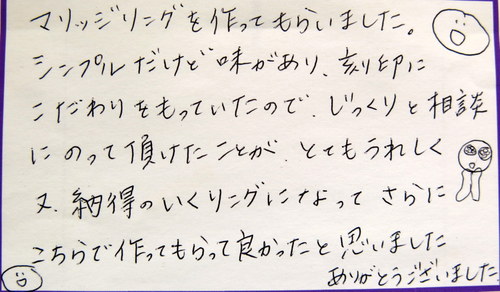 マリッジリングを作ってもらいました。
シンプルだけど味があり、刻印に
こだわりをもっていたので、じっくりと相談
にのって頂けたことが、とてもうれしく
又、納得のいくリングになって さらに
こちらで作ってもらって良かったと思いました
ありがとうございました